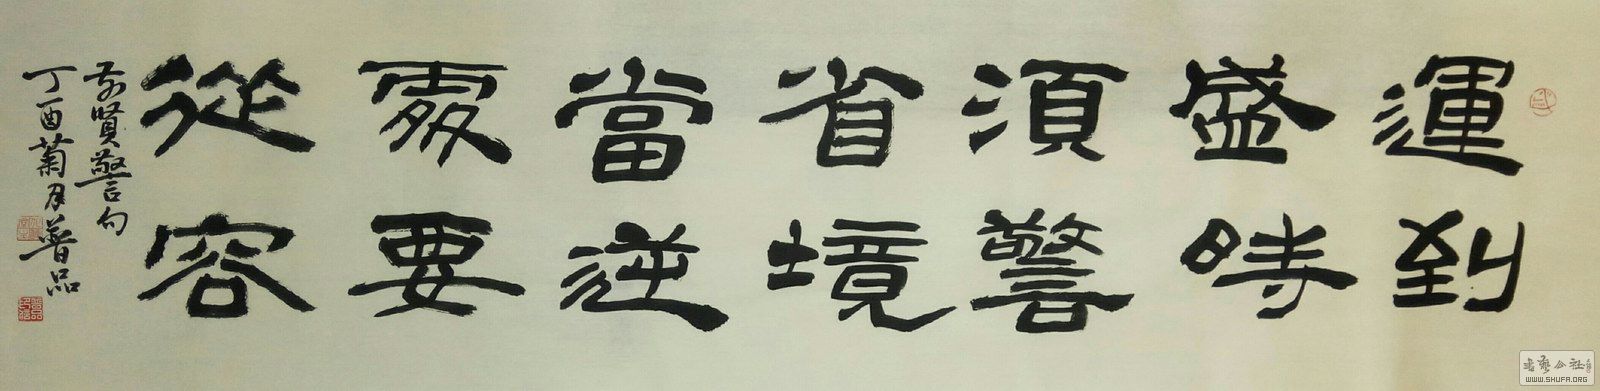 運到
盛時
須警
省境
當逆
處要
從容
前賢警句
丁酉菊月普品
書藝公社
WWW.SHUFA.ORG